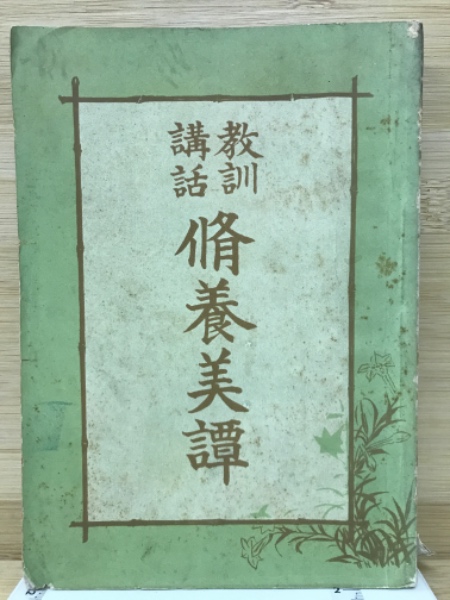 教訓
講話
脩養美譚